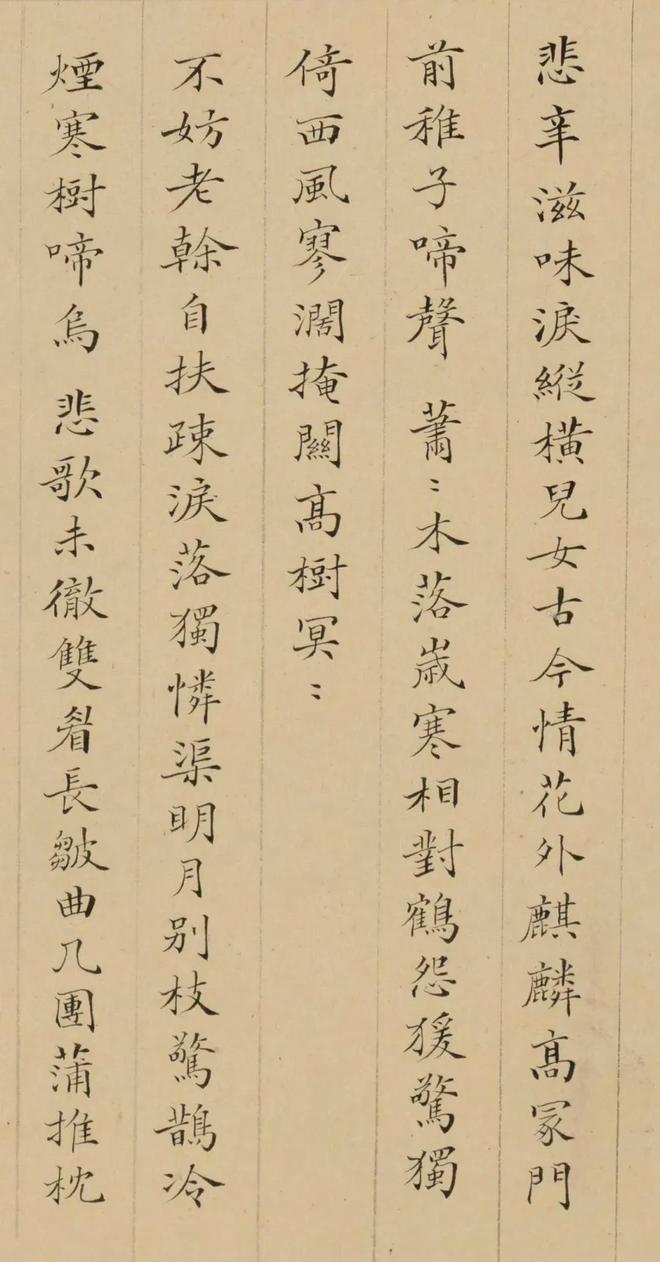 悲辛滋味淚縱橫兒女古今情花外麒麟高冢門
前稚子啼聲 蕭〻木落歲寒相對鶴怨猨驚獨
倚西風寥濶掩關髙樹冥〻
不妨老榦自扶疎淚落獨憐渠明月别枝驚鵲冷
煙寒樹啼烏 悲歌未徹雙眉長皺曲几團蒲推枕